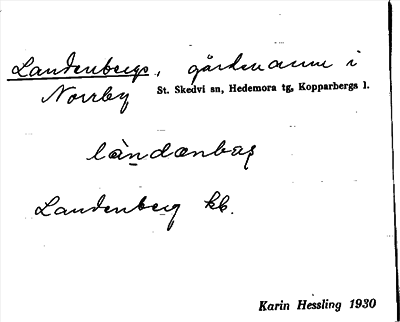 Landenbergs, gårdsnamn i
Norrby St. Skedvi sn, Hedemora tg, Kopparbergs l.
làndænbærj
Landenberg kb.
Karin Hessling 1930